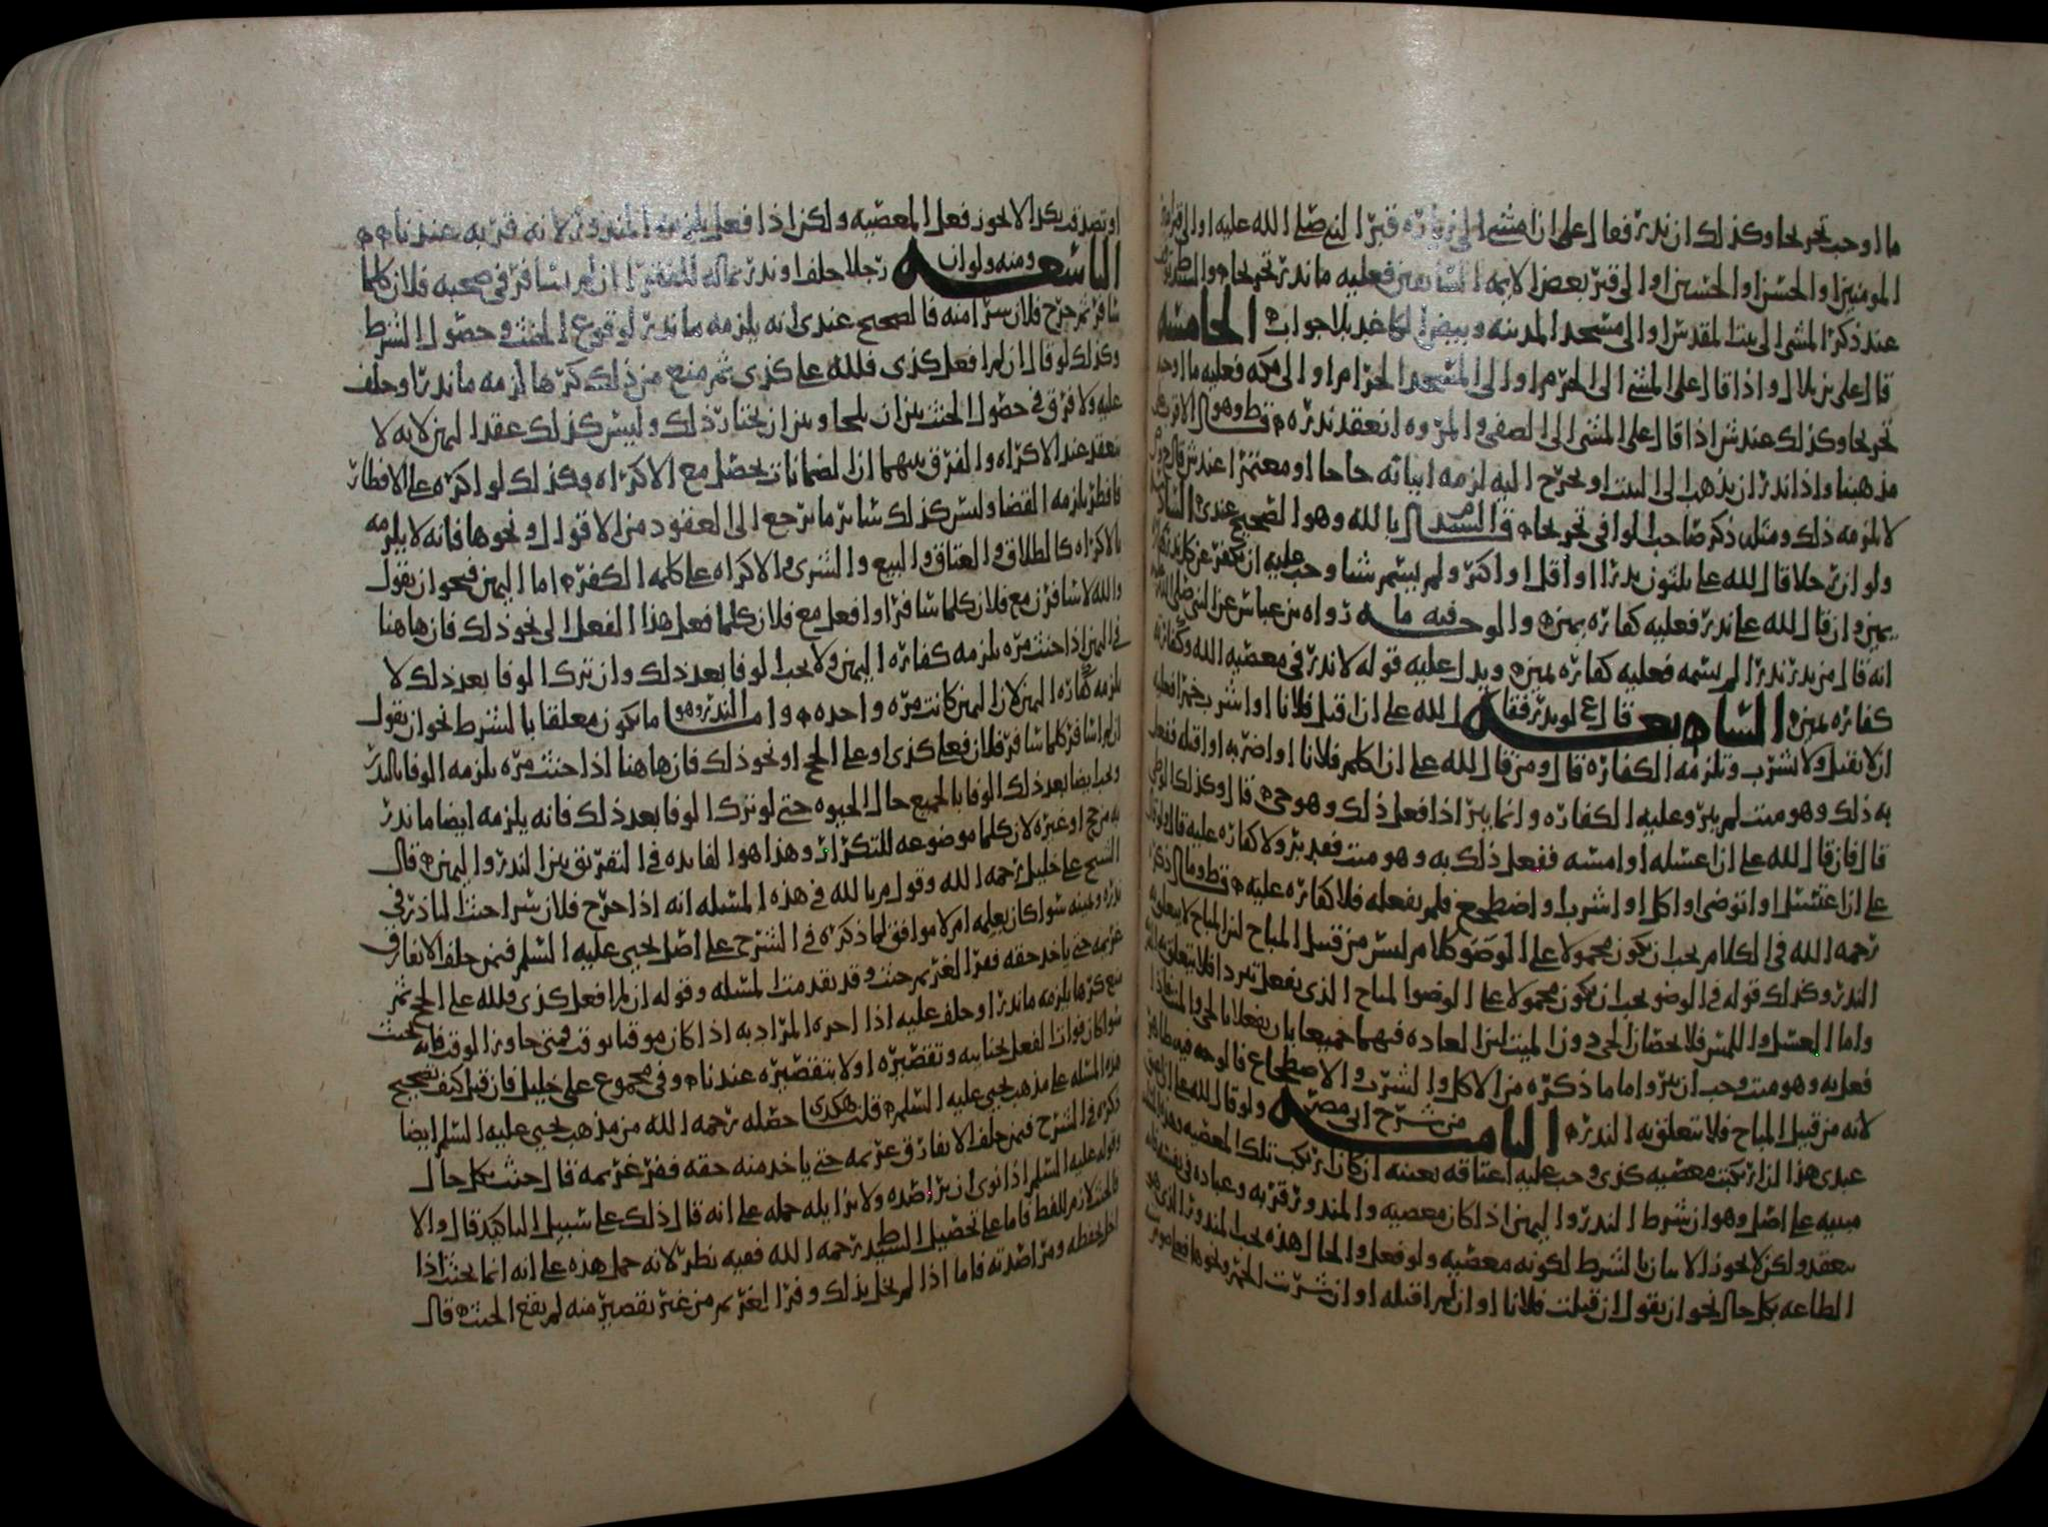 ما اوجب تحريحا وكذلك ان نذر فقال على ان امشي الى زياره قبر النبي صلى الله عليه او الى قبر امير
المومنين او الحسن او الحسين او الى قبر بعض الايمه السابقين فعليه ما نذر تحريحا
عند ذكر المشي الى بيت المقدس او الى مسجد المدينه وبيض الكاغد بلا جواب الخامسه
قال على بن بلال واذا قال على المشي الى الحرم او الى المسجد الحرام او الى مكه فعليه ما اوجب
تحريحا وكذلك عند ش اذا قال على المشي الى الصفى والمروه انعقد نذره قط وهو الاقرب على
مذهبنا واذا نذر ان يذهب الى البيت او يخرج اليه لزمه اتيانه حاجا او معتمرا عند ش قال
لا يلزمه ذلك ومثله ذكر صاحب الوافي تحريحا قال السيد بالله وهو الصحيح عندي السادسه
ولو ان رجلا قال لله علي ثلثون نذرا او اقل او اكثر ولم يسم شيا وجب عليه ان يكفر عن كل نذر كفاره
يمين وان قال لله علي نذر فعليه كفاره يمين والوجه فيه ما رواه بن عباس عن النبي صلى الله عليه
انه قال من نذر نذرا لم يسمه فعليه كفاره يمين ويدل عليه قوله لا نذر في معصيه الله وكفارته
كفاره يمين السابعه قال ع لو نذر فقال لله علي ان اقتل فلانا او اشرب خمرا فعليه
ان لا يقتل ولا يشرب وتلزمه الكفاره قال ومن قال لله علي ان اكلم فلانا او اضربه او اقبله ففعل
به ذلك وهو ميت لم يبر وعليه الكفاره وانما يبر اذا فعل ذلك وهو حي قال وكذلك الوطي
قال فان قال لله علي ان اغسله او امسه ففعل ذلك به وهو ميت فقد بر ولا كفاره عليه قال ولو قال
علي ان اغتسل او اتوضى او اكل او اشرب او اضطجع فلم يفعله فلا كفاره عليه قط وما ذكره
رحمه الله في الكلام يجب ان يكون محمولا على الوضو كلام ليس من قبيل المباح لان المباح لا يتعلق به
النذر وكذلك قوله في الوضو يجب ان يكون محمولا على الوضوا المباح الذي يفعل تبردا فلا يتعلق به
واما الغسل واللمس فلا يختصان الحي دون الميت لان العاده فيهما جميعا بان يفعلا بالحي والميت فاذا
فعل به وهو ميت وجب ان يبر واما ما ذكره من الاكل والشرب والاضطجاع فالوجه فيه ظاهر
لانه من قبيل المباح فلا يتعلق به النذر الثامنه من شرح ابي مضر ولو قال لله علي
عبدي هذا ان ارتكبت معصيه كذى وجب عليه اعتاقه بعينه ان كان ارتكب تلك المعصيه
مبنيه على اصل وهو ان شرط النذر واليمين اذا كان معصيه والمنذور قربه وعباده في نفسه فانه
ينعقد ولكن لا يجوز الاتيان بالشرط لكونه معصيه ولو فعل والحال هذه يجب المنذور الذي هو
الطاعه بكل حال نحو ان يقول ان قتلت فلانا او ان لم اقتله او ان شربت الخمر ونحوها فعلي صوم
او تصدق بكذا لا يجوز فعل المعصيه ولكن اذا فعل يلزمه المنذور لانه قربه عندنا
التاسعه ومنه ولو ان رجلا حلف او نذر بماله للفقرا ان لم يسافر في صحبه فلان كلما
سافر ثم خرج فلان سرا منه فالصحيح عندي انه يلزمه ما نذر لوقوع الحنث وحصول الشرط
وكذلك لو قال ان لم افعل كذى فلله علي كذى ثم منع من ذلك كرها لزمه ما نذر او حلف
عليه ولا فرق في حصول الحنث بين ان يلجا وبين ان يختار ذلك وليس كذلك عقد اليمين لانه لا
ينعقد عند الاكراه والفرق بينهما ان الضمانات يحصل مع الاكراه وكذلك لو اكره على الافطار
فافطر يلزمه القضا وليس كذلك سائر ما يرجع الى العقود من الاقوال ونحوها فانه لا يلزمه
بالاكراه كالطلاق والعتاق والبيع والشرى والاكراه على كلمه الكفر اما اليمين فنحو ان يقول
والله لاسافرن مع فلان كلما سافر او افعل مع فلان كلما فعل هذا الفعل الى نحو ذلك فان هاهنا
في اليمين اذا حنث مره يلزمه كفاره اليمين ولا يجب الوفا بعد ذلك وان ترك الوفا بعد ذلك لا
يلزمه كفاره اليمين لان اليمين كانت مره واحده واما النذر وهو ما يكون معلقا بالشرط نحو ان يقول
ان لم اسافر كلما سافر فلان فعلي كذى او على الحج او نحو ذلك فان هاهنا اذا حنث مره يلزمه الوفا بالنذر
ويجب ايضا بعد ذلك الوفا بالجميع حال الحيوه حتى لو ترك الوفا بعد ذلك فانه يلزمه ايضا ما نذر
به من حج او غيره لان كلما موضوعه للتكرار وهذا هو الفايده في التفريق بين النذر واليمين قال
الشيخ علي خليل رحمه الله وقول م بالله في هذه المسله انه اذا خرج فلان سرا حنث الناذر في
نذره ويمينه سوا كان يعلمه ام لا موافق لما ذكره في الشرح على اصل يحيى عليه السلم فيمن حلف لا يفارق
غريمه حتى ياخذ حقه ففر الغريم حنث وقد تقدمت المسله وقوله ان لم افعل كذى فلله علي الحج ثم
منع كرها يلزمه ما نذر او حلف عليه اذا اخره المراد به اذا كان موقتا بوقت فمتى جاوز الوقت فانه يحنث
سوا كان فوات الفعل بجنايته وتقصيره او لا بتقصيره عندنا وفي مجموع علي خليل فان قيل كيف تصحيح
هذه المسله على مذهب يحيى عليه السلم قلت هكذى حصله رحمه الله من مذهب يحيى عليه السلم ايضا
ذكره في الشرح فيمن حلف لا يفارق غريمه حتى ياخذ منه حقه ففر غريمه قال حنث بكل حال
وقوله عليه السلم اذا نوى ان يراصده ولا يزايله حمله على انه قال ذلك على سبيل التاكيد قال والا
فالحنث لازم للفظ فاما على تحصيل السيد ط رحمه الله ففيه نظر لانه حمل هذه على انه انما يحنث اذا
اخل بحفظه ومراصدته فاما اذا لم يخل بذلك وفر الغريم من غير تقصير منه لم يقع الحنث قال